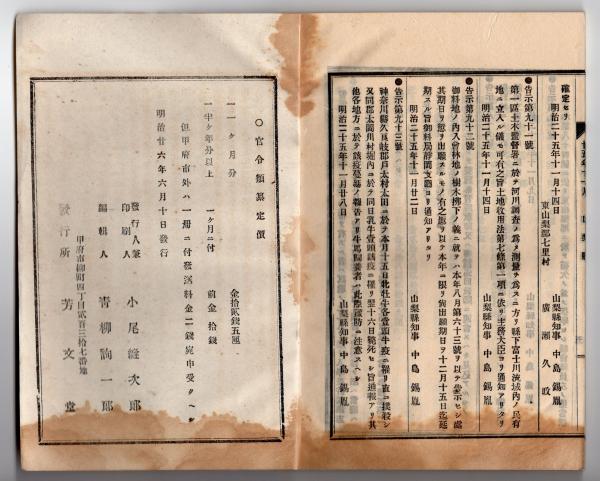 確定セリ
明治二十五年十一月十四日
東山梨郡七里村
廣瀬久政
山梨縣知事 中島錫胤
●告示第九十一號
第一區土木監督署ニ於テ河川調査ノ爲メ測量ヲ爲スニ方リ縣下富士川流域內ノ民有
地ニ立入ル儀モ可有之旨土地收用法第七條第一項ニ依リ主務大臣ヨリ通知アリタリ
明治二十五年十一月十四日
山梨縣知事 中島錫胤
●告示第九十二號
御料地ノ內入會林地ノ樹木拂下ノ義ニ就テハ本年八月第六十三號ヲ以テ告示セシ處
其期日ヲ愆リ出願スルモノ有之趣ヲ以テ本年ニ限リ尙出願期日ヲ十二月十五日迄延
期スル旨御料局靜岡支廳ヨリ通知アリタリ
明治二十五年十一月廿二日
山梨縣知事 中島錫胤
●告示第九十三號
神奈川縣久良岐郡戶太村太田ニ於テ本月十五日牝牡牛各壹頭牛疫ニ罹リ直ニ撲殺シ
又同郡太岡川村堀內ニ於テ同日乳牛壹頭該疫ニ罹リ翌十六日斃死セシ旨通報アリ其
他各地方ニ於テ該疫蔓延ノ報告アリ牛馬飼養者ハ此際豫防ニ注意スヘシ
明治二十五年十一月廿八日
山梨縣知事 中島錫胤
○官令類纂定價
一 一ヶ月分 金拾貳錢五厘
一 半ヶ年分以上 一ヶ月ニ付 前金拾錢
但甲府市外ハ一册ニ付發送料金二錢宛申受クヘシ
明治廿六年六月十日發行
發行人兼
印刷人 小尾
編輯人 青柳詢一郎
甲府市柳町四丁目貳百三十七番地
發行所 芳文堂